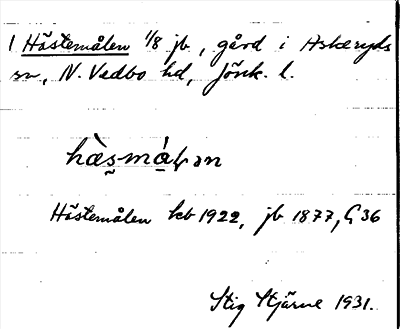 1 Hästemålen 1/8 jb, gård i Askeryds
sn, N. Vedbo hd, Jönk. l.
Hästemålen kb 1922, jb 1877, G 36
Stig Stjärne 1931.